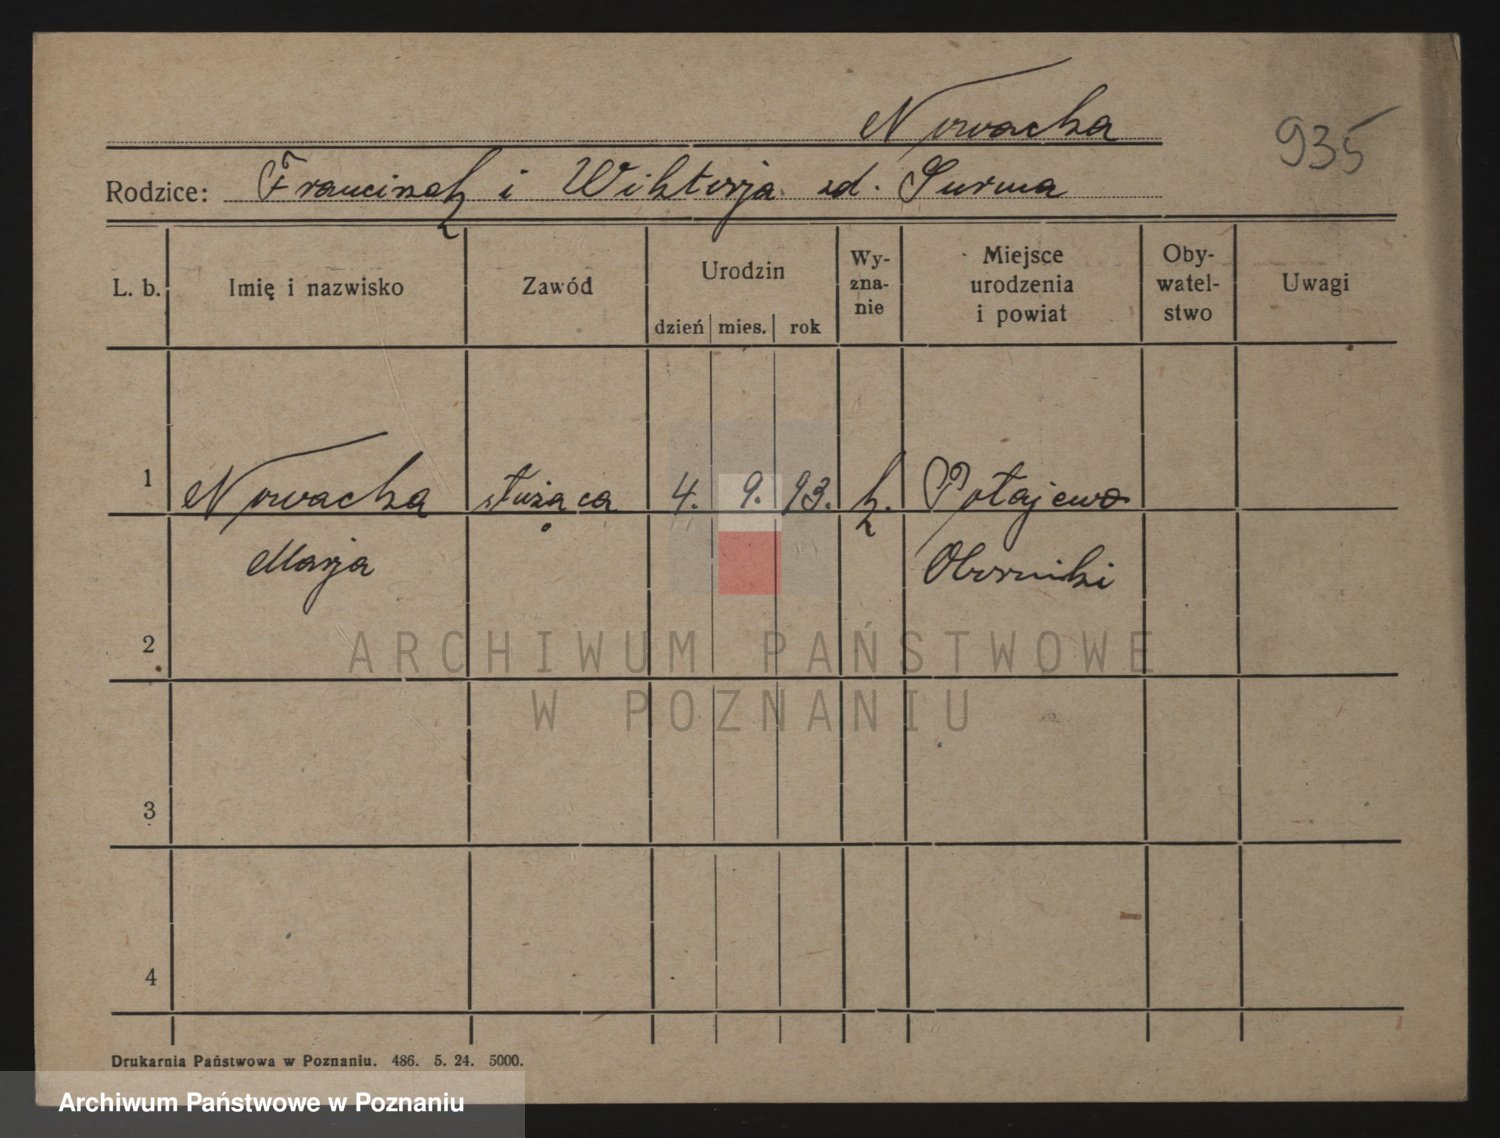 Nowacka
935
Rodzice: Franciszek i Wiktorja zd. Surma
L. b. Imię i nazwisko Zawód Urodzin dzień mies. rok Wy-zna-nie Miejsce urodzenia i powiat Oby-watel-stwo Uwagi
1 Nowacka służąca 4. 9. 93. k. Połajewo
Marja Oborniki
2
3
4
Drukarnia Państwowa w Poznaniu. 486. 5. 24. 5000.
ARCHIWUM PAŃSTWOWE
W POZNANIU
Archiwum Państwowe w Poznaniu